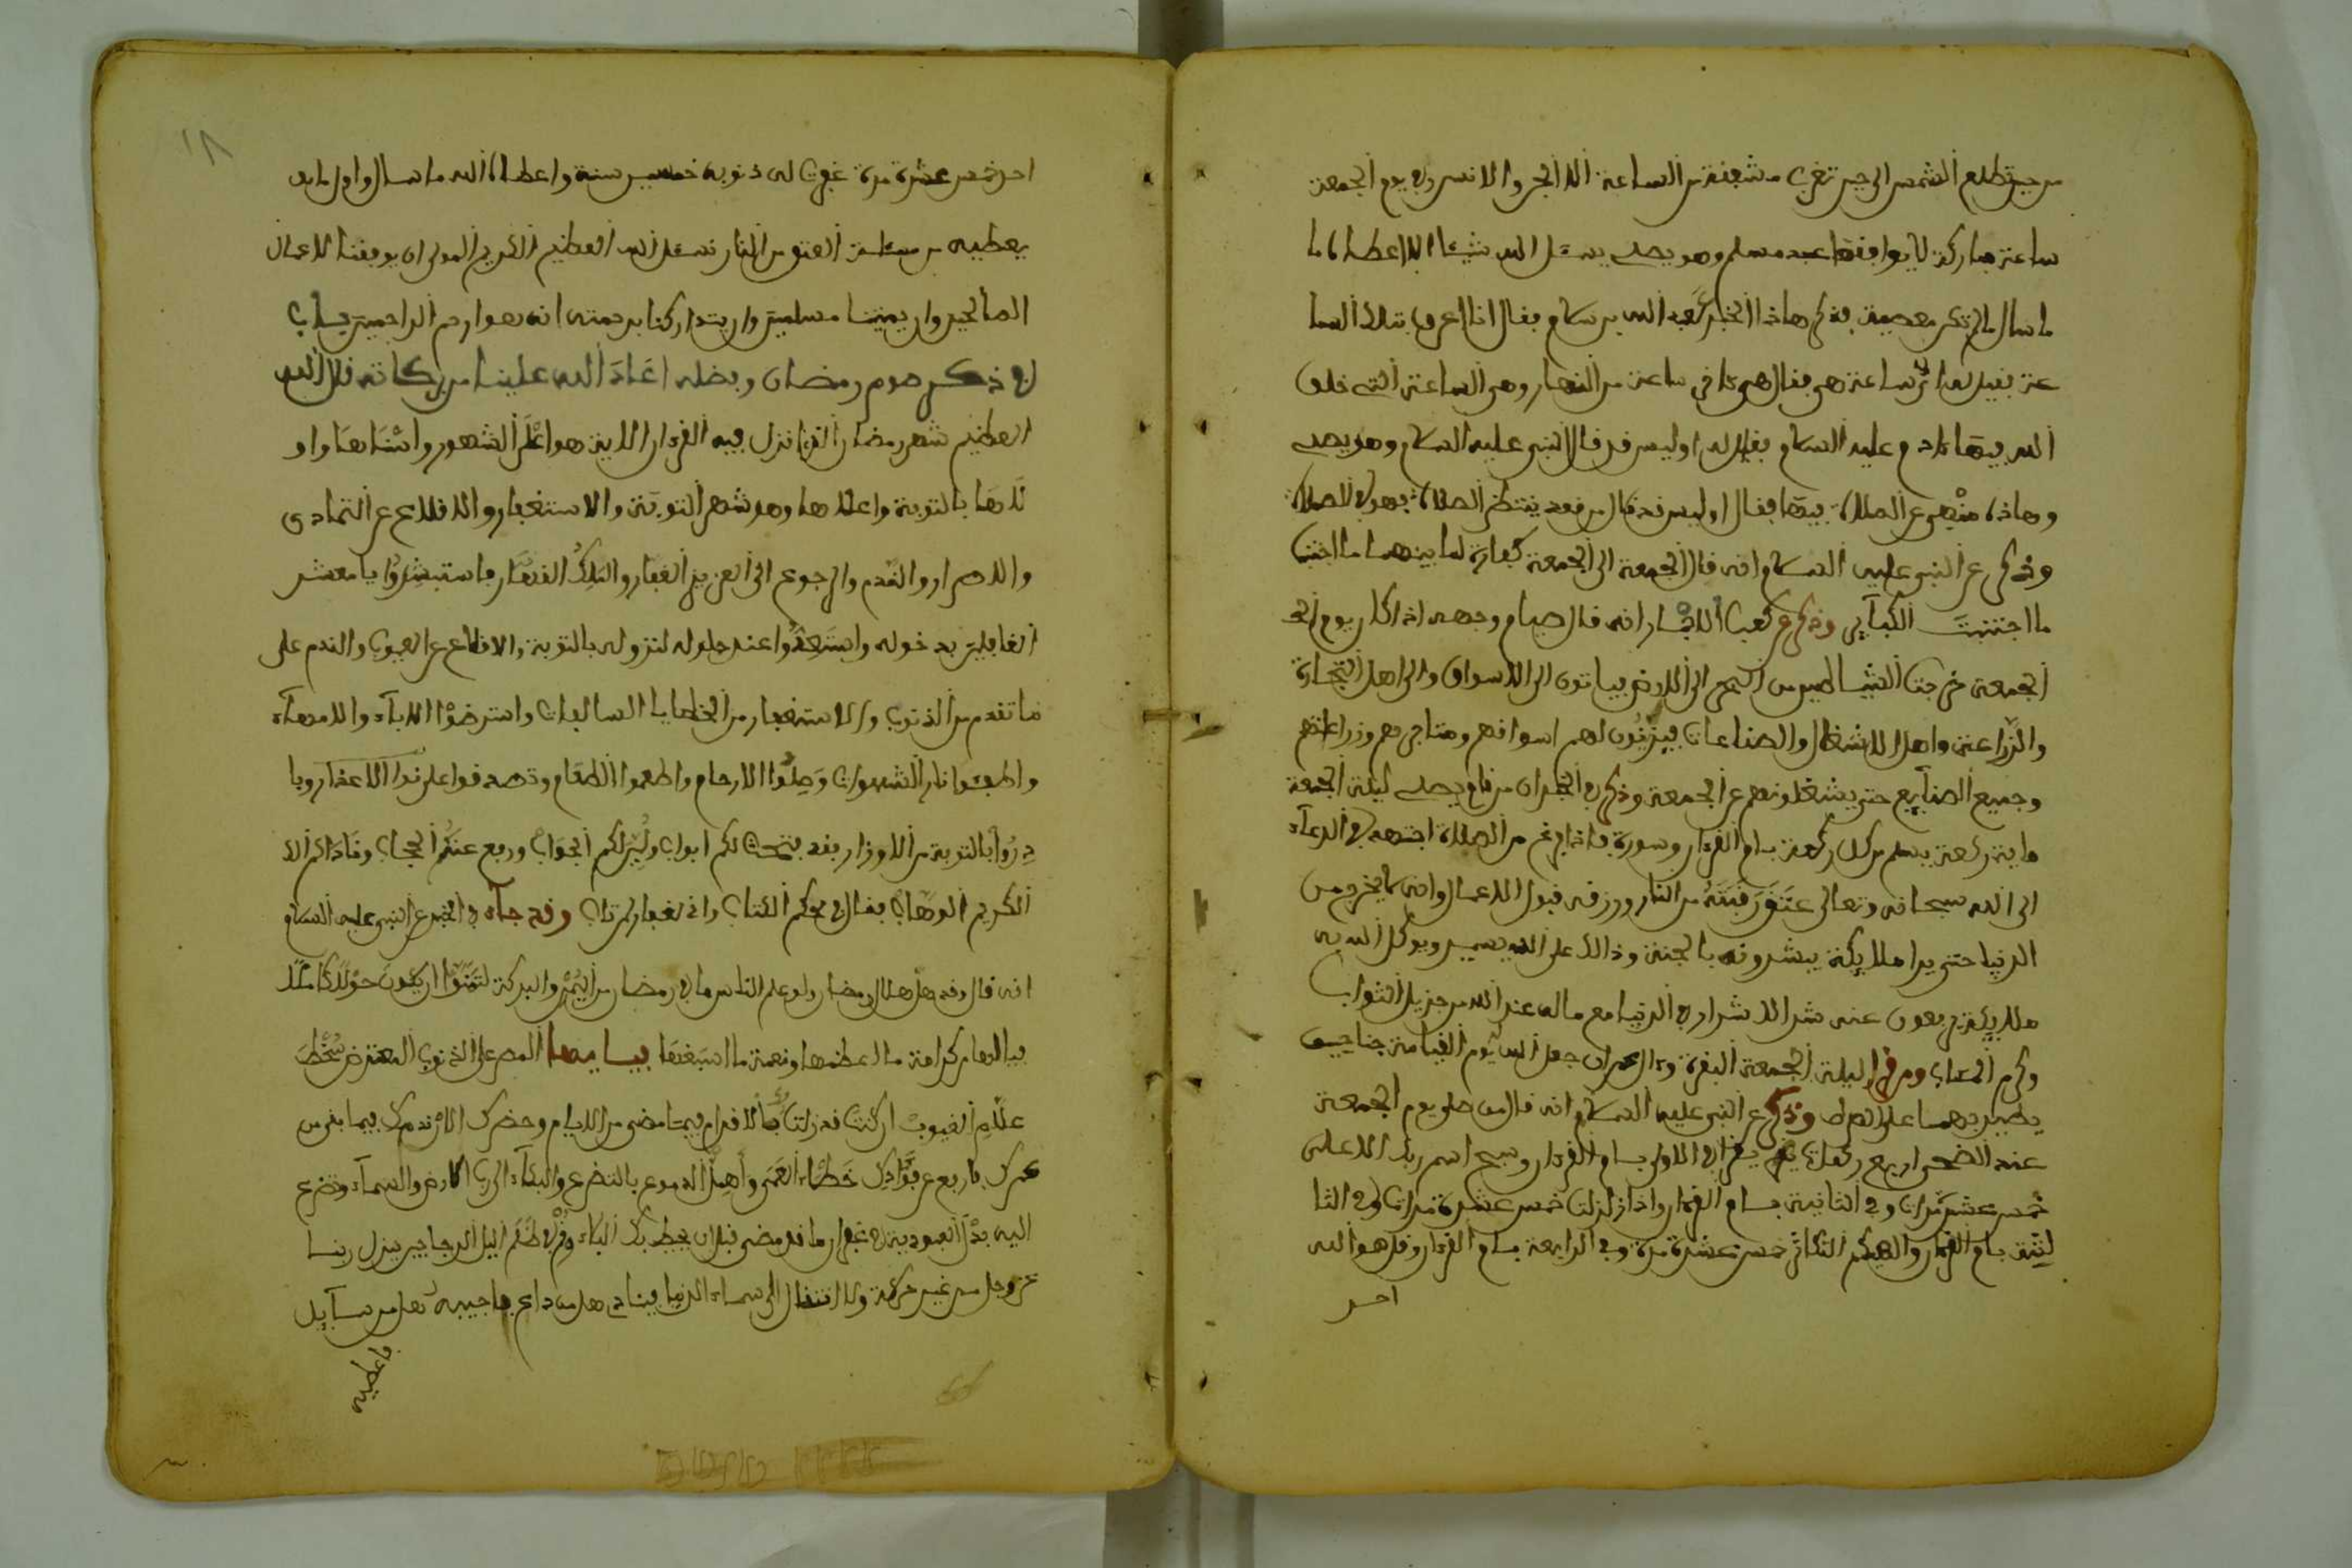 من حين تطلع الشمس الى حين تغرب مشفقة من الساعة الا الجن والانس وفي يوم الجمعة
ساعة مباركة لا يوافقها عبد مسلم وهو يصلي يسئل الله شيئا الا اعطاه ما
ما سال ما لم تكن معصية فذكر هاذا الخبر لعبد الله بن سلام فقال انا اعرف تلك السا
عة فقيل له اي ساعة هي فقال هي ءاخر ساعة من النهار وهي الساعة التي خلق
الله فيها ءادم عليه السلام فقيل له اوليس قد قال النبي عليه السلام وهو يصلي
وهاذه منهي عن الصلاة فيها فقال اوليس قد قال من قعد ينتظر الصلاة فهو في الصلاة
وذكر عن النبي عليه السلام انه قال الجمعة الى الجمعة كفارة لما بينهما ما اجتنبت
ما اجتنبت الكبآير وذكر عن كعب الاحبار انه قال صيام وجهه اذا كان يوم الجـ
الجمعة خرجت الشياطين من البحر الى الارض فياتون الى الاسواق والى اهل التجارة
والزراعة واهل الاشغال والصناعات فيزينون لهم اسواقهم ومتاجرهم وزراعتهم
وجميع الصنآيع حتى يشغلونهم عن الجمعة وذكر في الخبر ان من قام يصلي ليلة الجمعة
ماية ركعة يسلم من كل ركعة بام القرءان وسورة فاذا فرغ من الصلاة اجتهد في الدعآء
الى الله سبحانه وتعالى عتق رقبته من النار ورزقه قبول الاعمال وانه لا يخرج من
الدنيا حتى يرا ملايكة يبشرونه بالجنة وذالك على الله يسير ويوكل الله به
ملايكة يدفعون عنه شر الاشرار في الدنيا مع ما له عند الله من جزيل الثواب
وكرم المئاب ومن قرا ليلة الجمعة البقرة وءال عمران جعل الله له يوم القيامة جناحين
يطير بهما على الصراط وذكر عن النبي عليه السلام انه قال من صلى يوم الجمعة
عند الضحى اربع ركعات يقرا في الاولى بام القرءان وسبح اسم ربك الاعلى
خمس عشر مرات وفي الثانية بام القرءان واذا زلزلت خمس عشرة مرات وفي الثا
لثة بام القرءان والهيكم التكاثر خمس عشرة مرة وفي الرابعة بام القرءان وقل هو الله
احد
١٨
احد خمس عشرة مرة غفرت له ذنوبه خمسين سنة واعطاه الله ما سال واول ما
يعطيه من مسئلته العتق من النار نسئل الله العظيم الكريم المولى ان يوفقنا لاعمال
الصالحين وان يميتنا مسلمين وان يتداركنا برحمته انه هو ارحم الراحمين باب
في ذكر صوم رمضان وفضله اعاد الله علينا من بركاته قال الله
العظيم شهر رمضان الذي انزل فيه القرءان الاية هو اعظم الشهور واسناها واو
لاها بالتوبة واعلاها وهو شهر التوبة والاستغفار والاقلاع عن التمادي
والاصرار والندم والرجوع الى العزيز الغفار والملك القهار فاستبشروا يا معشر
الغافلين بدخوله واستعدوا عند حلوله لنزوله بالتوبة والاقلاع عن العيوب والندم على
ما تقدم من الذنوب والاستغفار من الخطايا السالفات واسترضوا الاباء والامهاء
واطفئوا نار الشهوات وصلوا الارحام واطعموا الطعام وتصدقوا على الاعذار وبا
دروا بالتوبة من الاوزار فقد فتحت لكم ابواب ويسر لكم الجواب ورفع عنكم الحجاب وناداكم الا
الكريم الوهاب فقال في محكم الكتاب واني لغفار لمن تاب وقد جآء في الخبر عن النبي عليه السلام
انه قال وقد هل هلال رمضان ولو علم الناس ما في رمضان من اليمن والبركة لتمنوا ان يكون حولا كاملا
فيا لها من كرامة ما اعظمها ونعمة ما اسبغها فيا ايها المصر على الذنوب المعترض سخط
علام الغيوب ان كنت قد زلت بك الاقدام فيما مضى من الايام وحضرك الان ندمك فيما بقي من
عمرك فارفع عن فؤادك غطاء الغمر واهمل الدموع بالتضرع والبكآء الى رب الارض والسمآء وتضرع
اليه بذل العبودية في غفران ما قد مضى قبل ان يحيط بك البلاء وقم في ظلم اليل الدجا حين ينزل ربنا
عز وجل من غير حركة ولا انتقال الى سماء الدنيا فينادي هل من داع فاجيبه هل من سآيل
فاعطيه